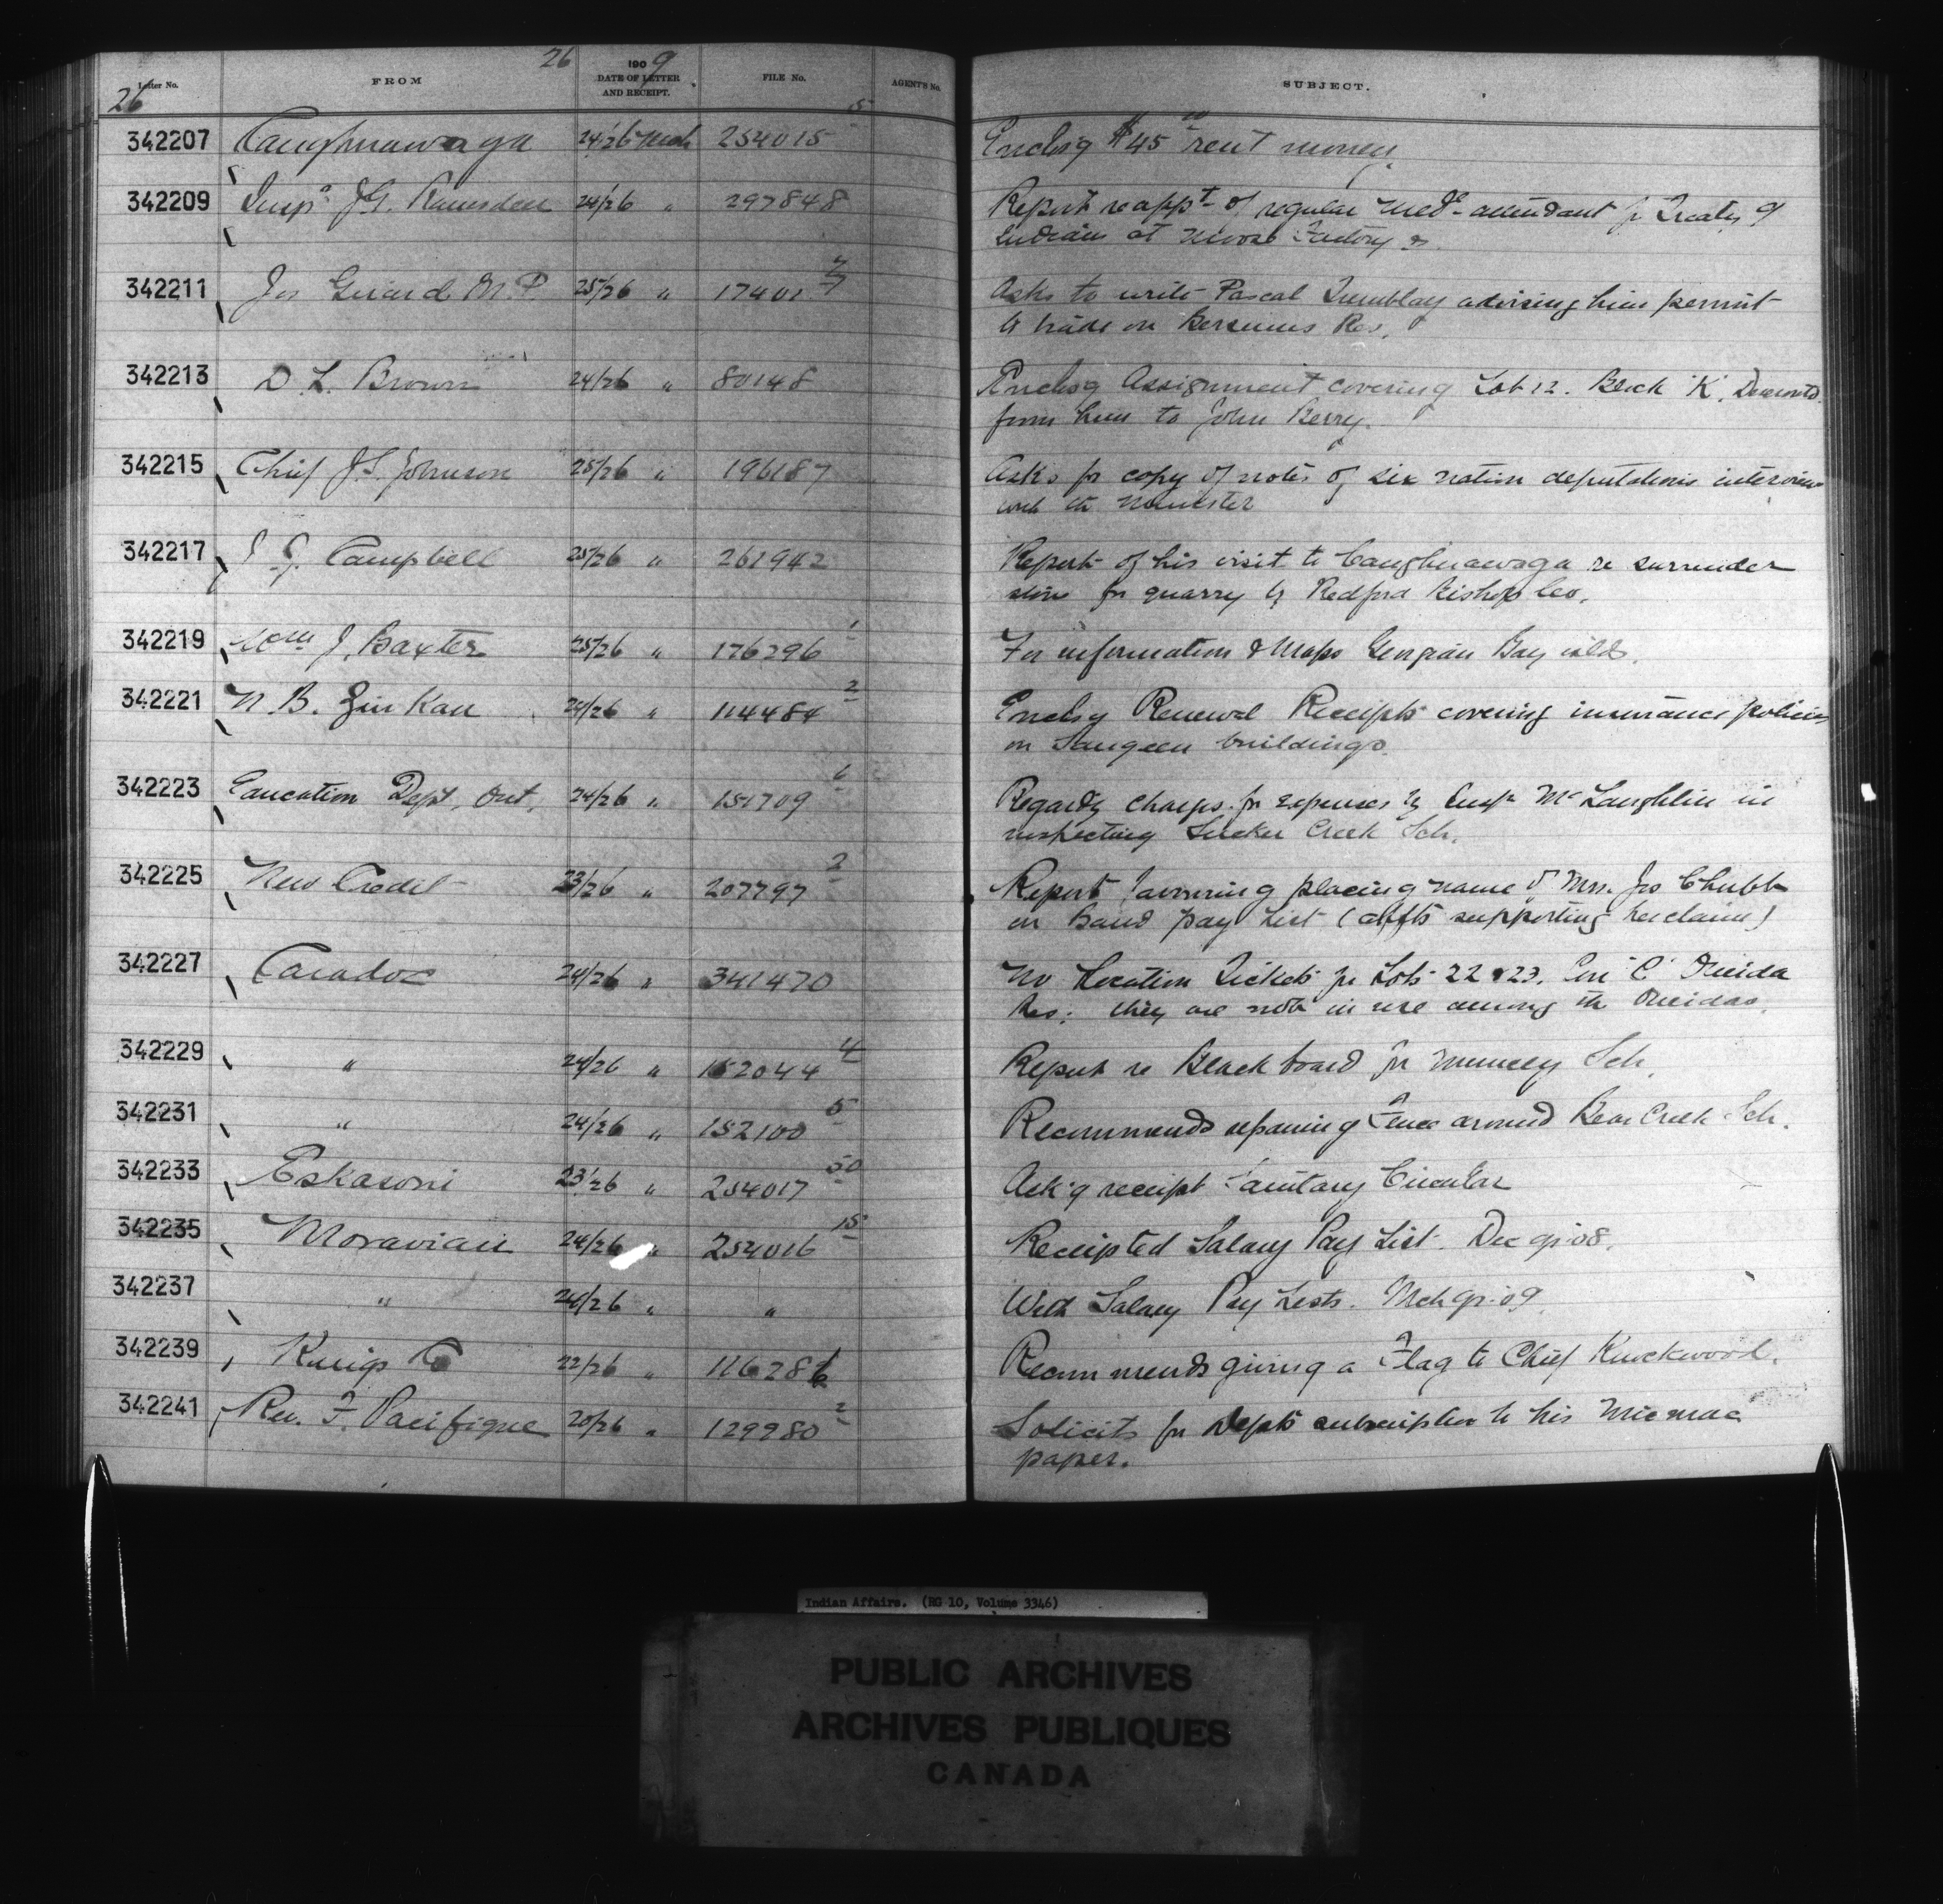 26 1909
Letter No. FROM DATE OF LETTER AND RECEIPT. FILE No. AGENT'S No. SUBJECT.
26
342207 Caughnawaga 24/26 Mch 254015 5 Enclosg $45 00 rent money.
342209 Insp r J.G. Ramsden 24/26 " 297848 Report re appt of regular Med attendant for Treaty 9
Indians at Moose Factory
342211 Jos Girard M.P 25/26 " 17401 7 Asks to write Pascal Tremblay advising him permit
to trade on Bersimis Res.
342213 D. L. Brown 24/26 " 80148 Enclosg Assignment covering Lot 12. Block "K".
from him to John Berry.
342215 Chief J.S. Johnson 25/26 " 196187 Asks for copy of notes of six nation deputations interview
with the Minister
342217 J. G. Campbell 25/26 " 261942 Report of his visit to Caughnawaga re surrender
stone for quarry by Redford Bishop Co.
342219 Wm J. Baxter 25/26 " 176296 1 For information & Maps Georgian Bay islds.
342221 N. B. Zinkan 24/26 " 114484 2 Enclosg Renewal Receipts covering insurance policies
on Saugeen buildings.
342223 Education Dept, Ont, 24/26 " 151709 6 Regardg charges for expenses by Inspr McLaughlin in
inspecting Sucker Creek Sch.
342225 New Credit 23/26 " 207797 2 Report favouring placing name of Mrs. Jos Chubb
on Band pay List (affts supporting her claim)
342227 Caradoc 24/26 " 341470 No Location Tickets for Lots 22 & 23. Con "C" Oneida
Res: they are not in use among the Oneidas.
342229 " 24/26 " 152044 4 Report re Blackboard for Muncey Sch.
342231 " 24/26 " 152100 5 Recommends repairing Fence around Bear Creek Sch.
342233 Eskasoni 23/26 " 254017 50 Ack'g receipt Sanitary Circular
342235 Moravian 24/26 " 254016 15 Receipted Salary Pay List. Dec qr 08.
342237 " 24/26 " " With Salary Pay Lists. Mch qr. 09.
342239 Kings Co 22/26 " 116286 Recommends giving a Flag to Chief Knockwood.
342241 Rev. F. Pacifique 20/26 " 129980 2 Solicits for Depts subscription to his Micmac
paper.
Indian Affairs. (RG 10, Volume 3346)
PUBLIC ARCHIVES
ARCHIVES PUBLIQUES
CANADA